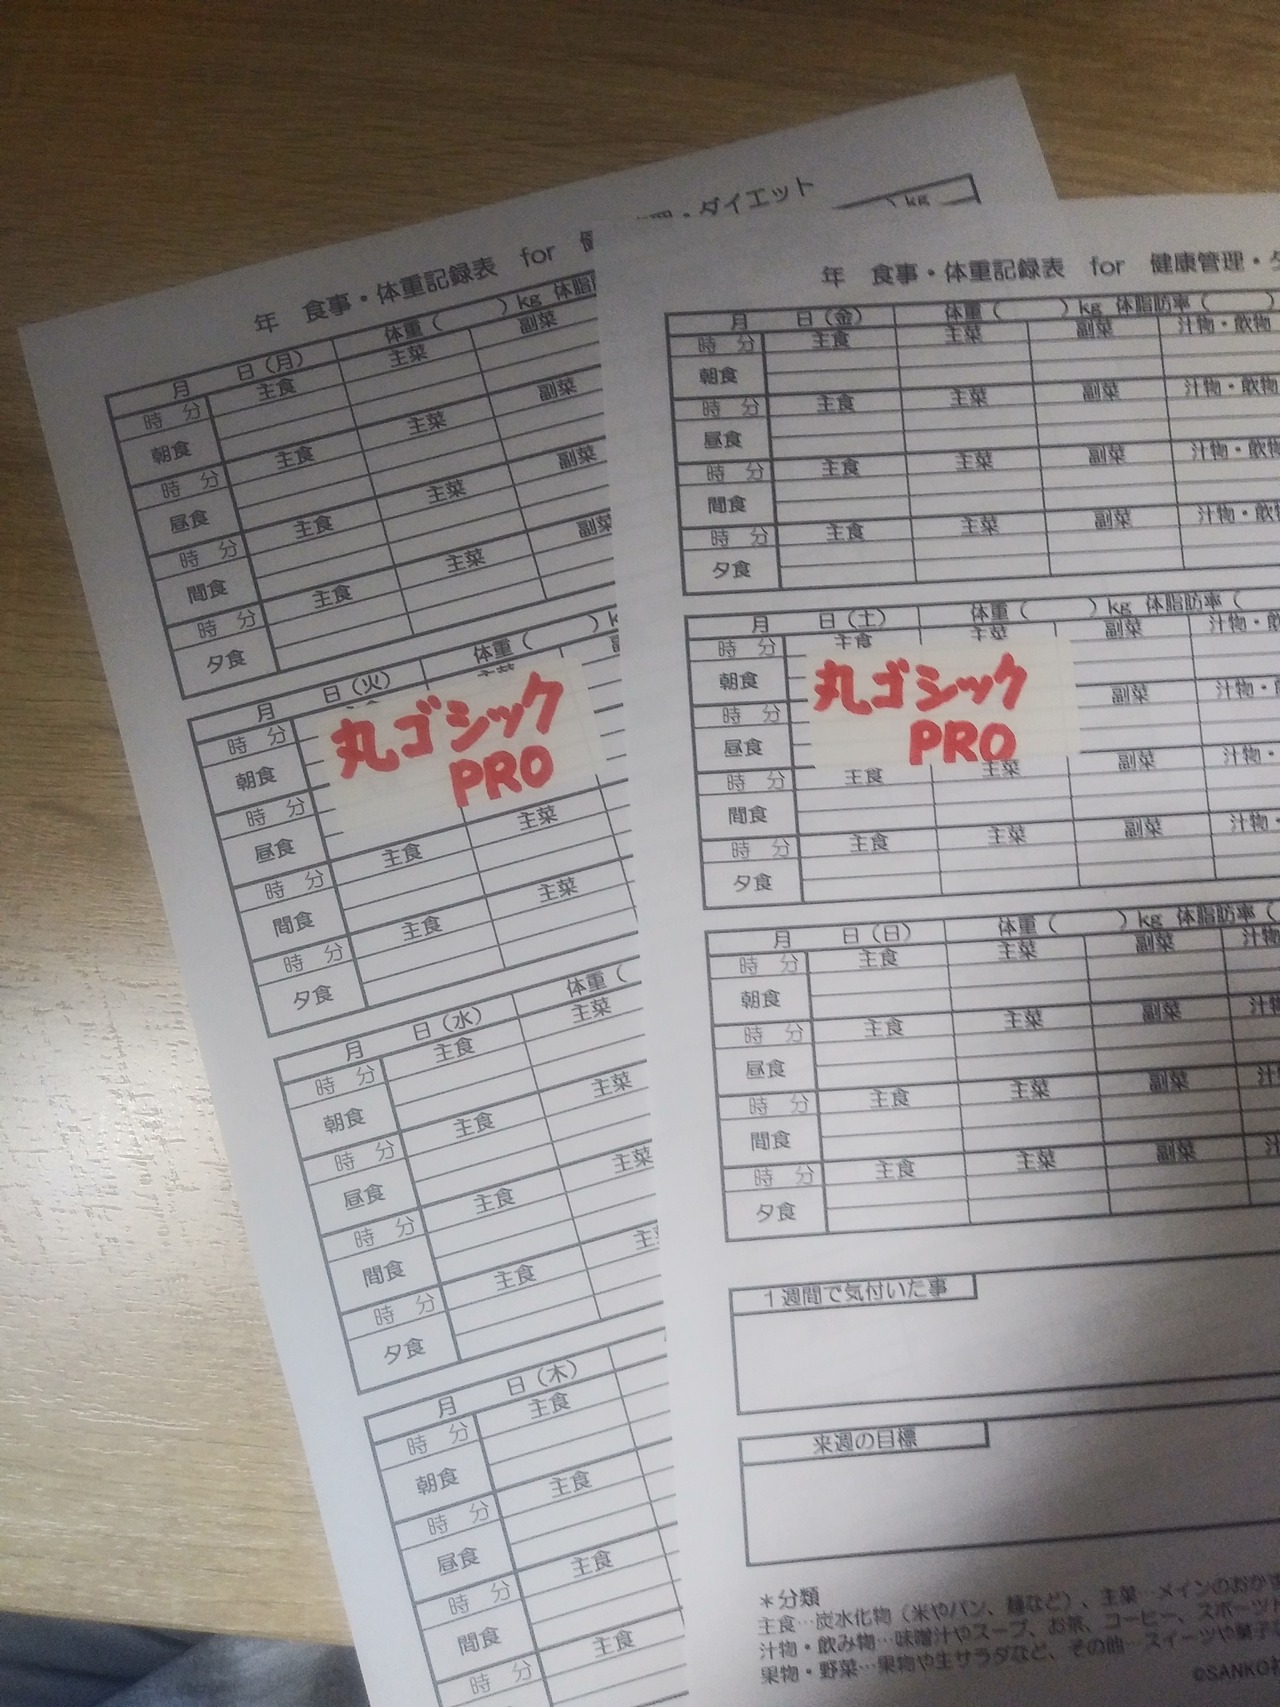 年 食事・体重記録表 for
理・ダイエット
) kg
月 日（月） 体重（ ）kg 体脂
時 分 主食 主菜 副菜
朝食
時 分 主食 主菜 副菜
昼食
時 分 主食 主菜 副菜
間食
時 分 主食 主菜 副菜
夕食
月 日（火） 体重（ ）
時 分 主菜
朝食
丸ゴシック
PRO
時 分
昼食
時 分 主食 主菜
間食
時 分 主食 主菜
夕食
月 日（水） 体重（
時 分 主食 主菜
朝食
時 分 主食 主菜
昼食
時 分 主食 主菜
間食
時 分 主食 主
夕食
月 日（木）
時 分 主食
朝食
時 分 主食
昼食
時 分 主食
間食
時 分 主食
年 食事・体重記録表 for 健康管理・
月 日（金） 体重（ ）kg 体脂肪率（ ）
時 分 主食 主菜 副菜 汁物・飲物
朝食
時 分 主食 主菜 副菜 汁物・飲物
昼食
時 分 主食 主菜 副菜 汁物・飲物
間食
時 分 主食 主菜 副菜 汁物・飲物
夕食
月 日（土） 体重（ ）kg 体脂肪率（
時 分 主食 主菜 副菜 汁物・飲
朝食
丸ゴシック
PRO
時 分 副菜 汁物・
昼食
時 分 主食 主菜 副菜 汁物・
間食
時 分 主食 主菜 副菜 汁物・
夕食
月 日（日） 体重（ ）kg 体脂肪率（
時 分 主食 主菜 副菜 汁物
朝食
時 分 主食 主菜 副菜 汁物
昼食
時 分 主食 主菜 副菜 汁
間食
時 分 主食 主菜 副菜 汁
夕食
１週間で気付いた事
来週の目標
＊分類
主食…炭水化物（米やパン、麺など）、主菜…メインのおかず
汁物・飲み物…味噌汁やスープ、お茶、コーヒー、スポーツド
果物・野菜…果物や生サラダなど、その他…スイーツや菓子
©SANKO